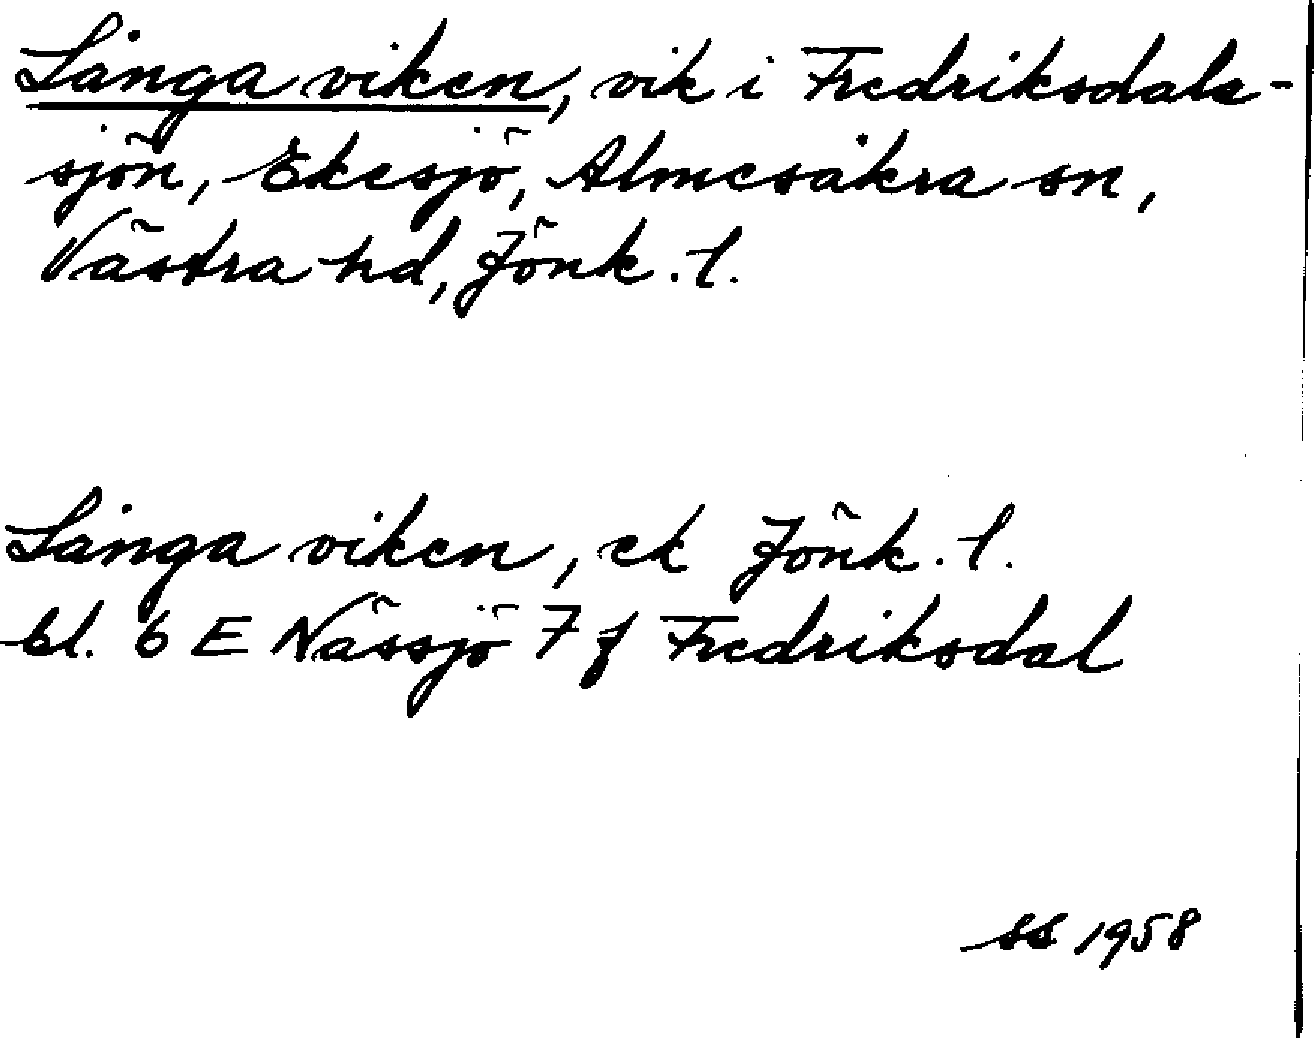 Långa viken, vik i Fredriksdals-
sjön, Ekesjö, Almesåkra sn,
Västra hd, Jönk. l.
Långa viken, ek Jönk. l.
bl. 6 E Nässjö 7 f Fredriksdal
SS 1958